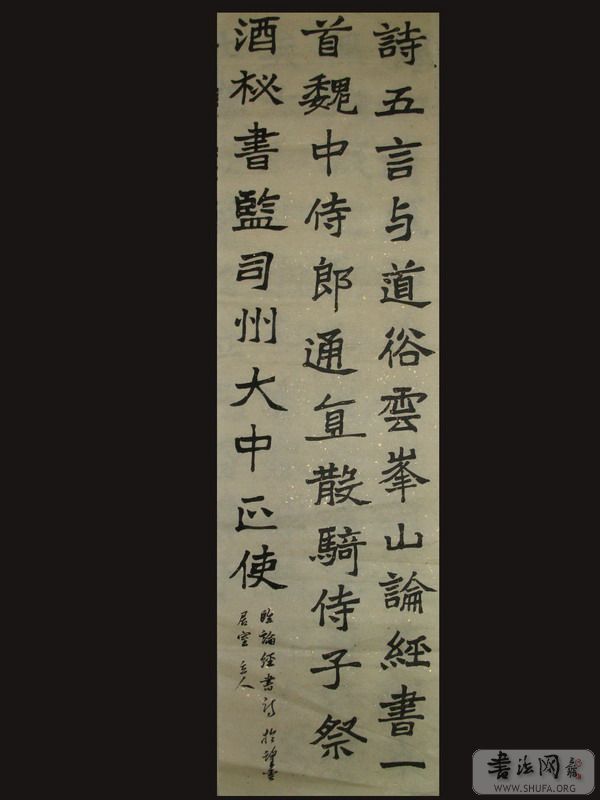 詩五言与道俗雲峯山論經書一
首魏中侍郎通直散騎侍子祭
酒秘書監司州大中正使
臨論經書詩於
居室 立人
書法网
WWW.SHUFA.ORG